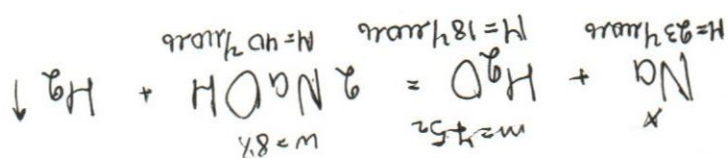 x m=75г w=8%
Na + H₂O = 2 NaOH + H₂ ↑
M=23г/моль M=18г/моль M=40г/моль